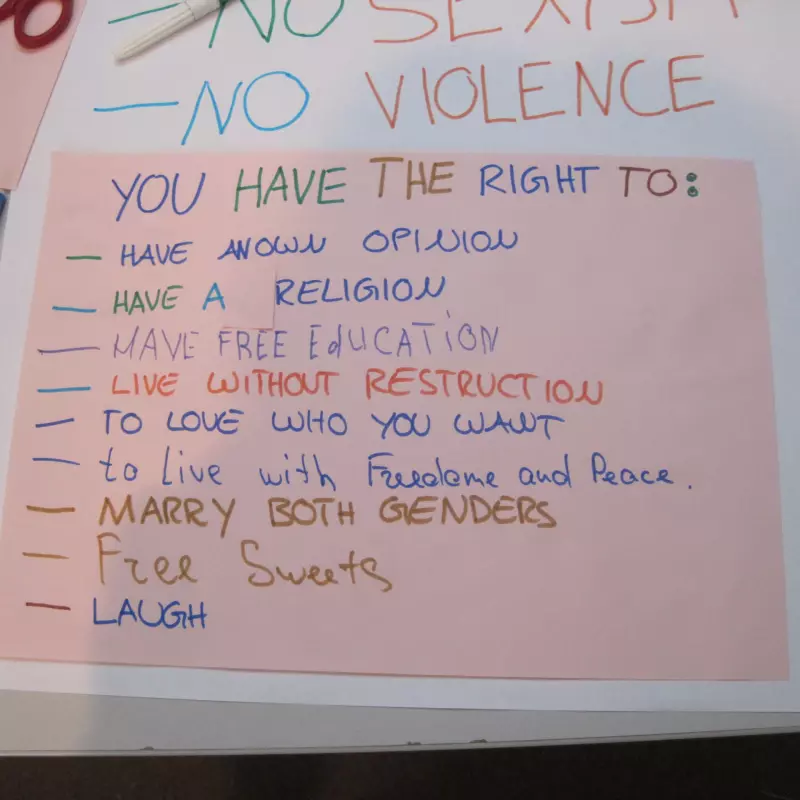 — NO SEXISM
— NO VIOLENCE
YOU HAVE THE RIGHT TO:
— HAVE AN OWN OPINION
— HAVE A RELIGION
— HAVE FREE EdUCATiON
— LIVE WITHOUT RESTRUCTION
— TO LOVE WHO YOU WANT
— to live with Freedome and Peace.
— MARRY BOTH GENDERS
— Free Sweets
— LAUGH